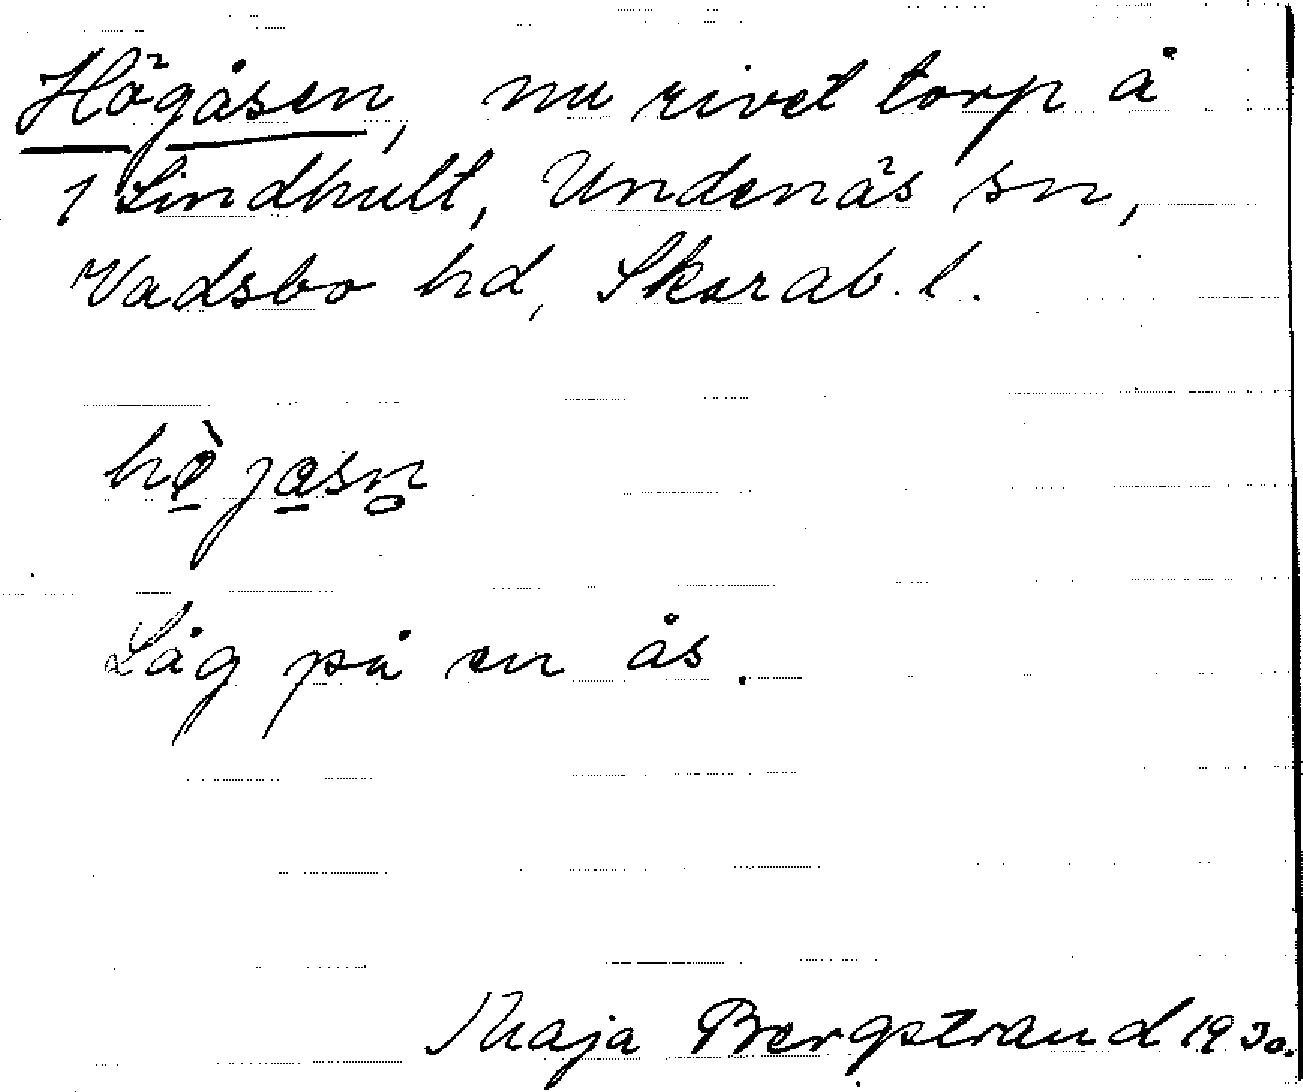 Högåsen, nu rivet torp å
1 Lindhult, Undenäs sn,
Vadsbo hd, Skarab. l.
hø̀jasn̥
Låg på en ås.
Maja Bergstrand 1930.